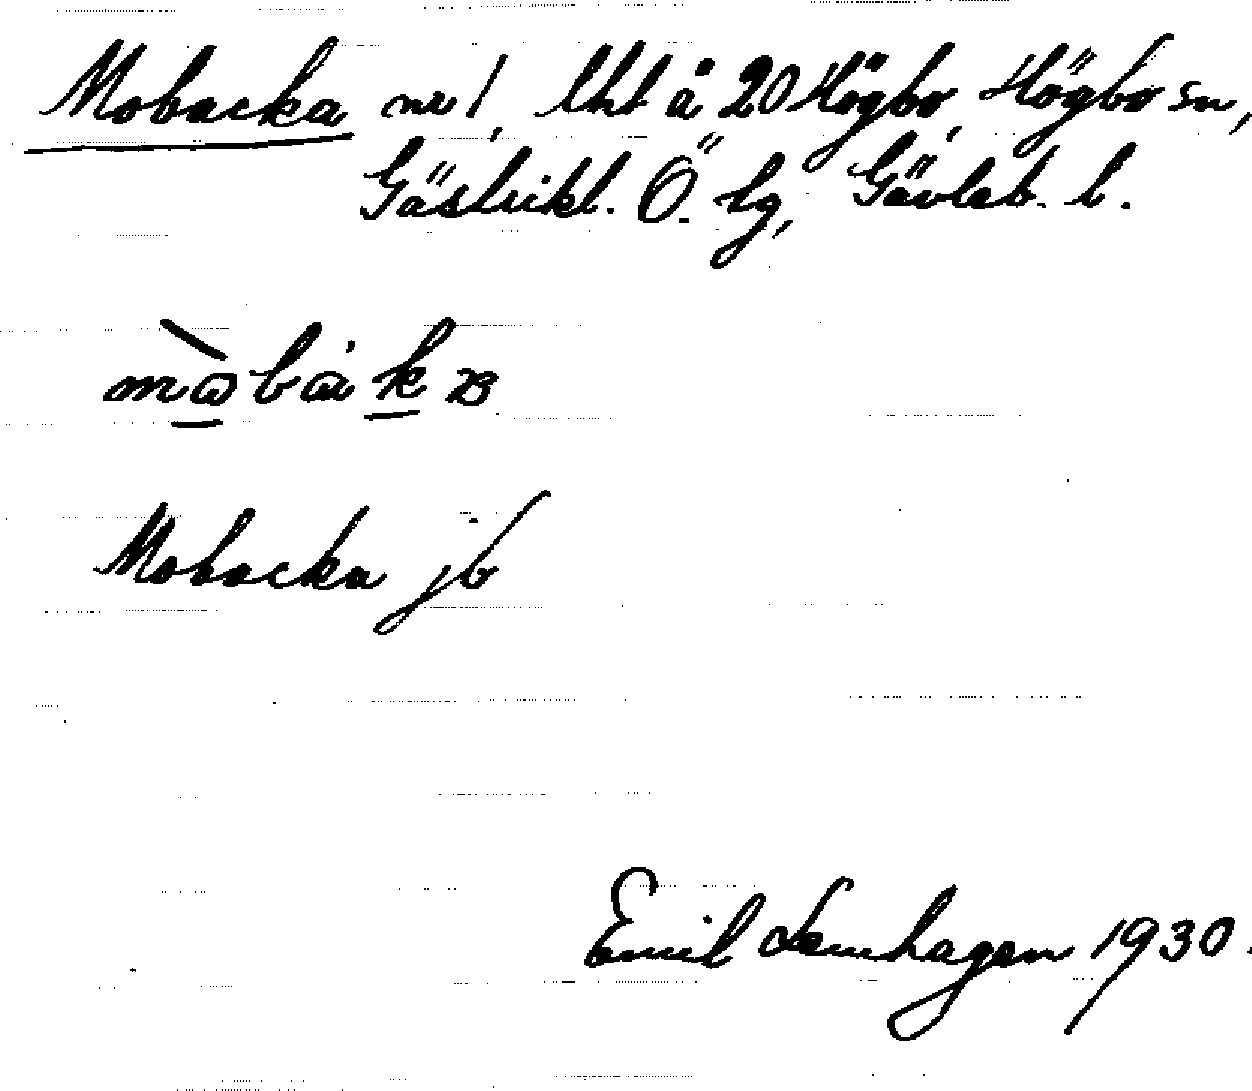 Mobacka nr 1, lht å 20 Högbo, Högbo sn,
Gästrikl. Ö. tg, Gävleb. l.
Mobacka jb
Emil Lenhagen 1930.